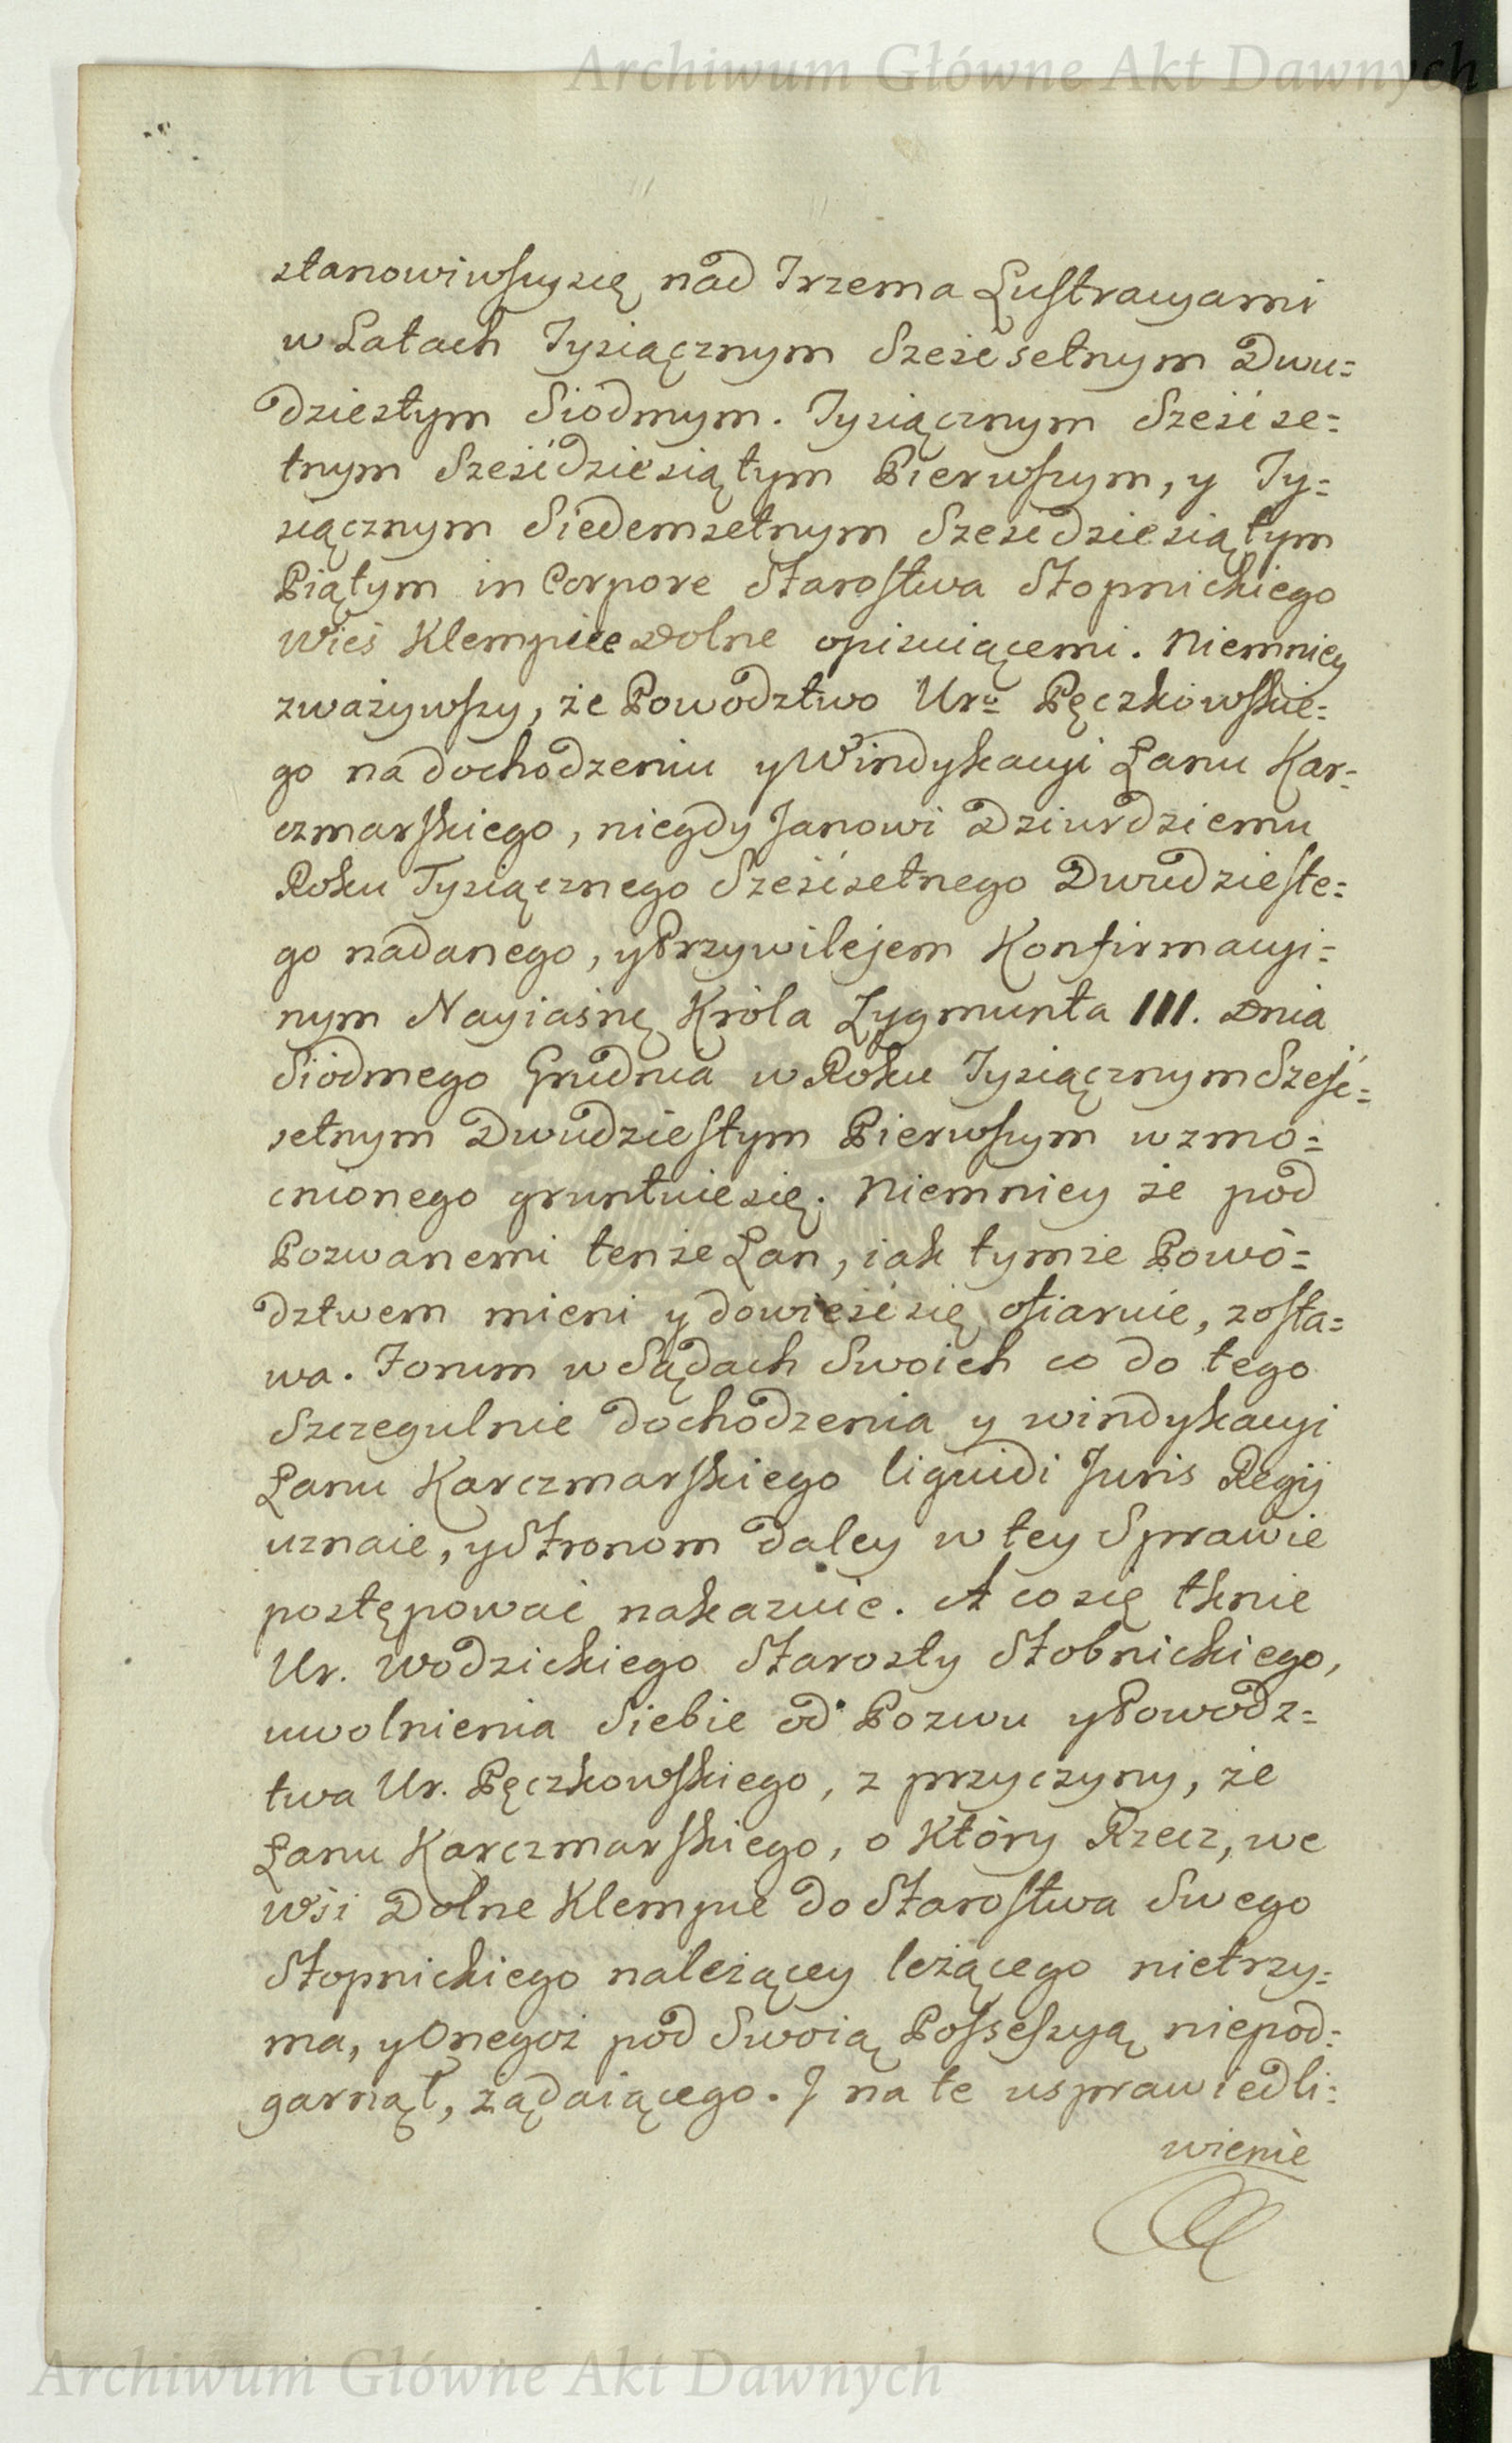 Archiwum Główne Akt Dawnych
stanowiwszysię nad Trzema Lustracyami
w Latach Tysiącznym Sześćsetnym Dwu=
dziestym Siodmym. Tysiącznym Sześćse=
tnym Sześćdziesiątym Pierwszym, y Ty=
siącznym Siedemsetnym Sześćdziesiątym
Piątym in Corpore Starostwa Stopnickiego
Wieś Klempice Dolne opisuiącemi. Niemniey
zważywszy, że Powodztwo Urº Pęczkowskie=
go na dochodzeniu y Windykacyi Łanu Kar=
czmarskiego, niegdy Janowi Dziurdziemu
Roku Tysiącznego Sześćsetnego Dwudzieste=
go nadanego, y Przywilejem Konfirmacyi=
nym Nayiaśnę Króla Zygmunta III. Dnia
Siódmego Grudnia w Roku Tysiącznym Sześć=
setnym Dwudziestym Pierwszym wzmo=
cnionego gruntuiesię. Niemniey że pod
Pozwanemi tenże Łan, iak tymże Powó=
dztwem mieni y dowieśćsię ofiaruie, zosta=
wa. Forum w Sądach Swoich co do tego
Szczegulnie dochodzenia y windykacyi
Łanu Karczmarskiego liquidi Juris Regij
uznaie, y Stronom daley w tey Sprawie
postępować nakazuie. A co się tknie
Ur. Wodzickiego Starosty Stobnickiego,
uwolnienia Siebie od Pozwu y Powodz=
twa Ur. Pęczkowskiego, z przyczyny, że
Łanu Karczmarskiego, o Który Rzecz, we
Wsi Dolne Klempie do Starostwa Swego
Stopnickiego należącey leżącego nietrzy=
ma, y Onegoż pod Swoią Possessyą niepod=
garnął, żądaiącego. J na te usprawiedli=
wienie
Archiwum Główne Akt Dawnych